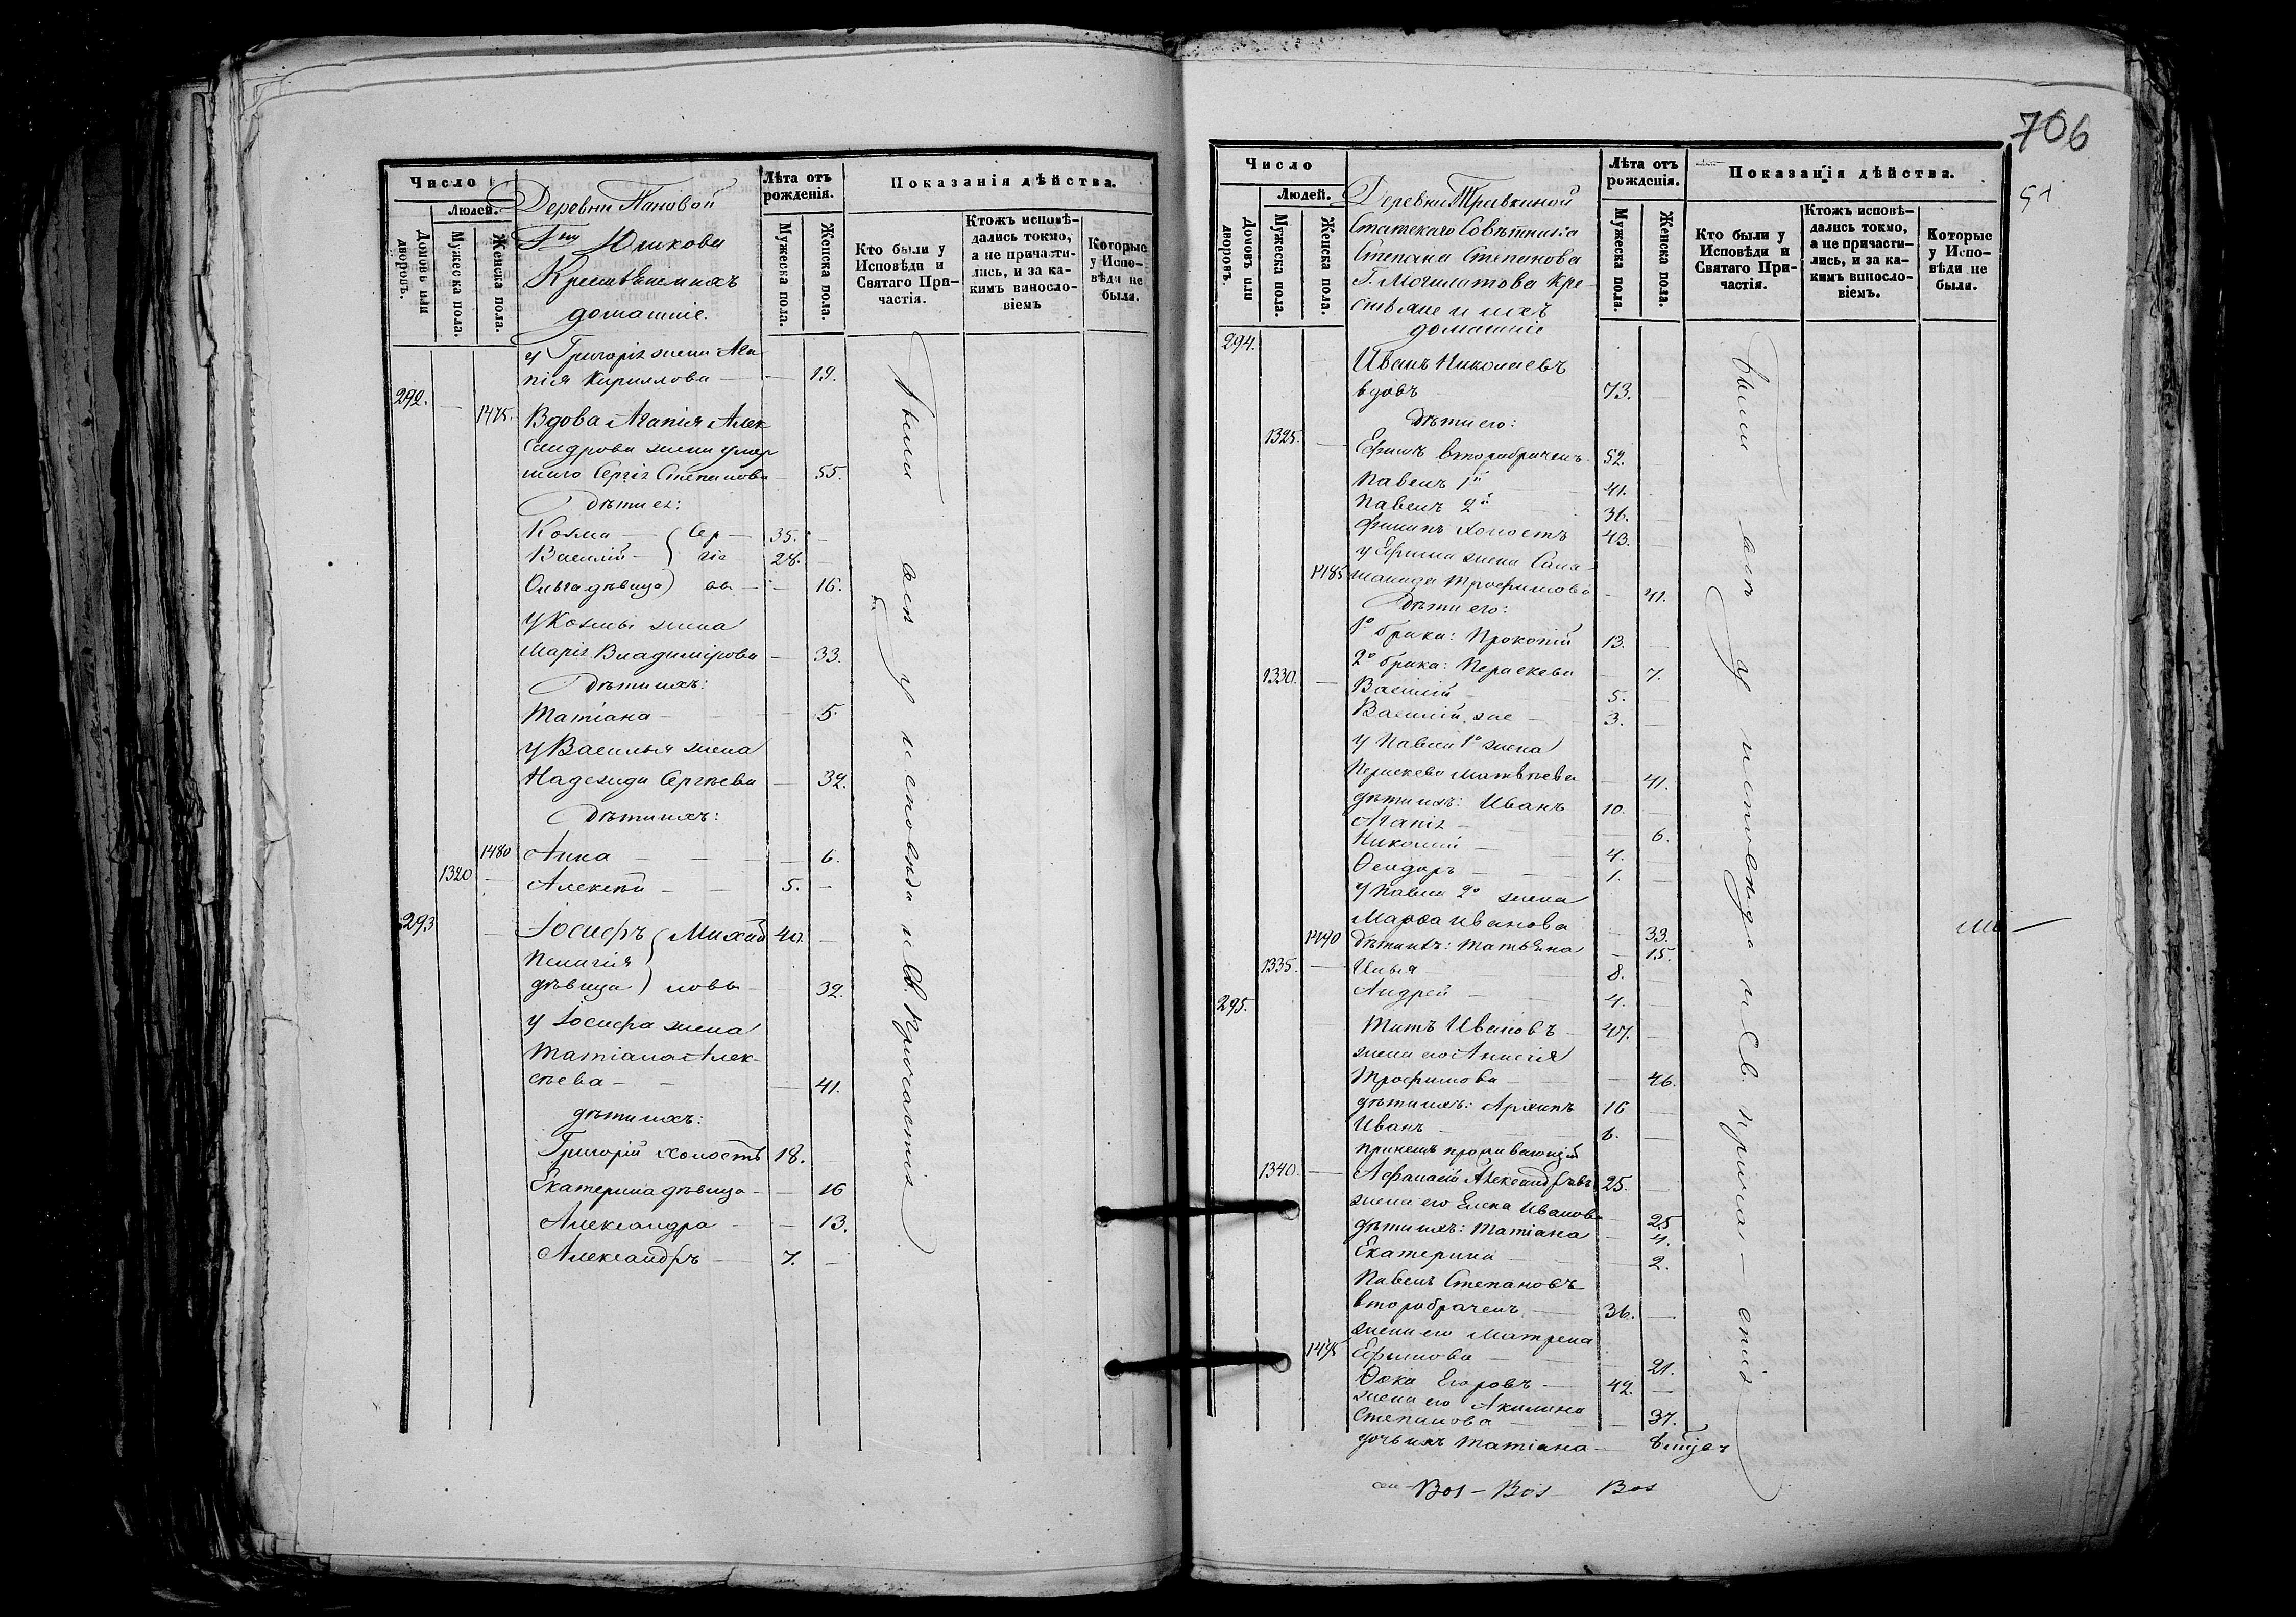 Число
Людей.
Домовъ или дворовъ.
Мужеска пола.
Женска пола.
Деревни Пановой
Г-ну Юшкова
Крестьянъ и ихъ
домашніе.
Лѣта отъ рожденія.
Мужеска пола.
Женска пола.
Показанія дѣйства.
Кто были у Исповѣди и Святаго Причастія.
Ктожъ исповѣ-
дались токмо,
а не причасти-
лись, и за ка-
кимъ винословіемъ
Которые
у Испо-
вѣди не
были.
у Григорія жена Ага
пія Кириллова — — 19.
292. — 1475. Вдова Агапія Алек
сандрова жена умер
шаго Сергія Степанова — 55.
Дѣти ея:
Козма — Сер — 35. —
Василій — гіе 28. —
Ольга дѣвица вы — — 16.
У Козмы жена
Марія Владимірова — 33.
Дѣти ихъ:
Татіана — — — 5.
у Василья жена
Надежда Сергѣева — 32.
Дѣти ихъ:
1480 Анна — — — 6.
1320 — Алексѣй — — 5. —
293 — Іосифъ Михай 40. —
Пелагія
дѣвица ловы — 32.
у Іосифа жена
Татіана Алек-
сѣева — — — 41.
дѣти ихъ:
Григорій холостъ 18. —
Екатерина дѣвица — — 16
Александра — — 13.
Александръ — 7. —
Были всѣ у исповѣди и Св. Причастія
706
51.
Число
Людей.
Домовъ или дворовъ.
Мужеска пола.
Женска пола.
Деревни Травкиной
Статскаго Совѣтника
Степана Степанова
Г. Мочилатова кре
стьяне и ихъ
домашніе
Лѣта отъ рожденія.
Мужеска пола.
Женска пола.
Показанія дѣйства.
Кто были у Исповѣди и Святаго Причастія.
Ктожъ исповѣ-
дались токмо,
а не причасти-
лись, и за ка-
кимъ винословіемъ.
Которые
у Испо-
вѣди не
были.
294.
Иванъ Николаевъ
вдовъ 73. —
Дѣти его:
1325. — Ефимъ вторабраченъ 52. —
Павелъ 1й — 41. —
Павелъ 2й 36. —
Филипъ холостъ 43. —
у Ефима жена Сала
1485 манида Трофимова — 41.
Дѣти его:
1го брака: Прокопій 13. —
2го брака: Параскева — 7.
1330. — Василій — 5. —
Василій же — 3. —
у Павла 1го жена
Параскева Матвѣева — 41.
дѣти ихъ: Иванъ 10. —
Агапія — — 6.
Николай — 4. —
Ѳеидоръ — 1. —
У Павла 2го жена
Марѳа Иванова — 33.
1490 Дѣти ихъ: Татьяна — 15.
1335. — Илья — 8. —
Андрей — 4. —
295.
Титъ Ивановъ — 47. —
жена его Анисія
Трофимова — — 46.
дѣти ихъ: Архипъ 16 —
Иванъ — 6. —
пришелъ проживающій
1340. — Афанасій Александровъ 25. —
жена его Елена Иванова — 25
дѣти ихъ: Татіана — 4.
Екатерина — — 2.
Павелъ Степановъ
вторабраченъ — 36. —
жена его Матрена
1495 Ефимова — — 21.
Ѳока Егоровъ — 42. —
жена его Акилина
Степанова — — 37.
дочь ихъ Татіана —
Были всѣ у исповѣди и Св. Прича — стія